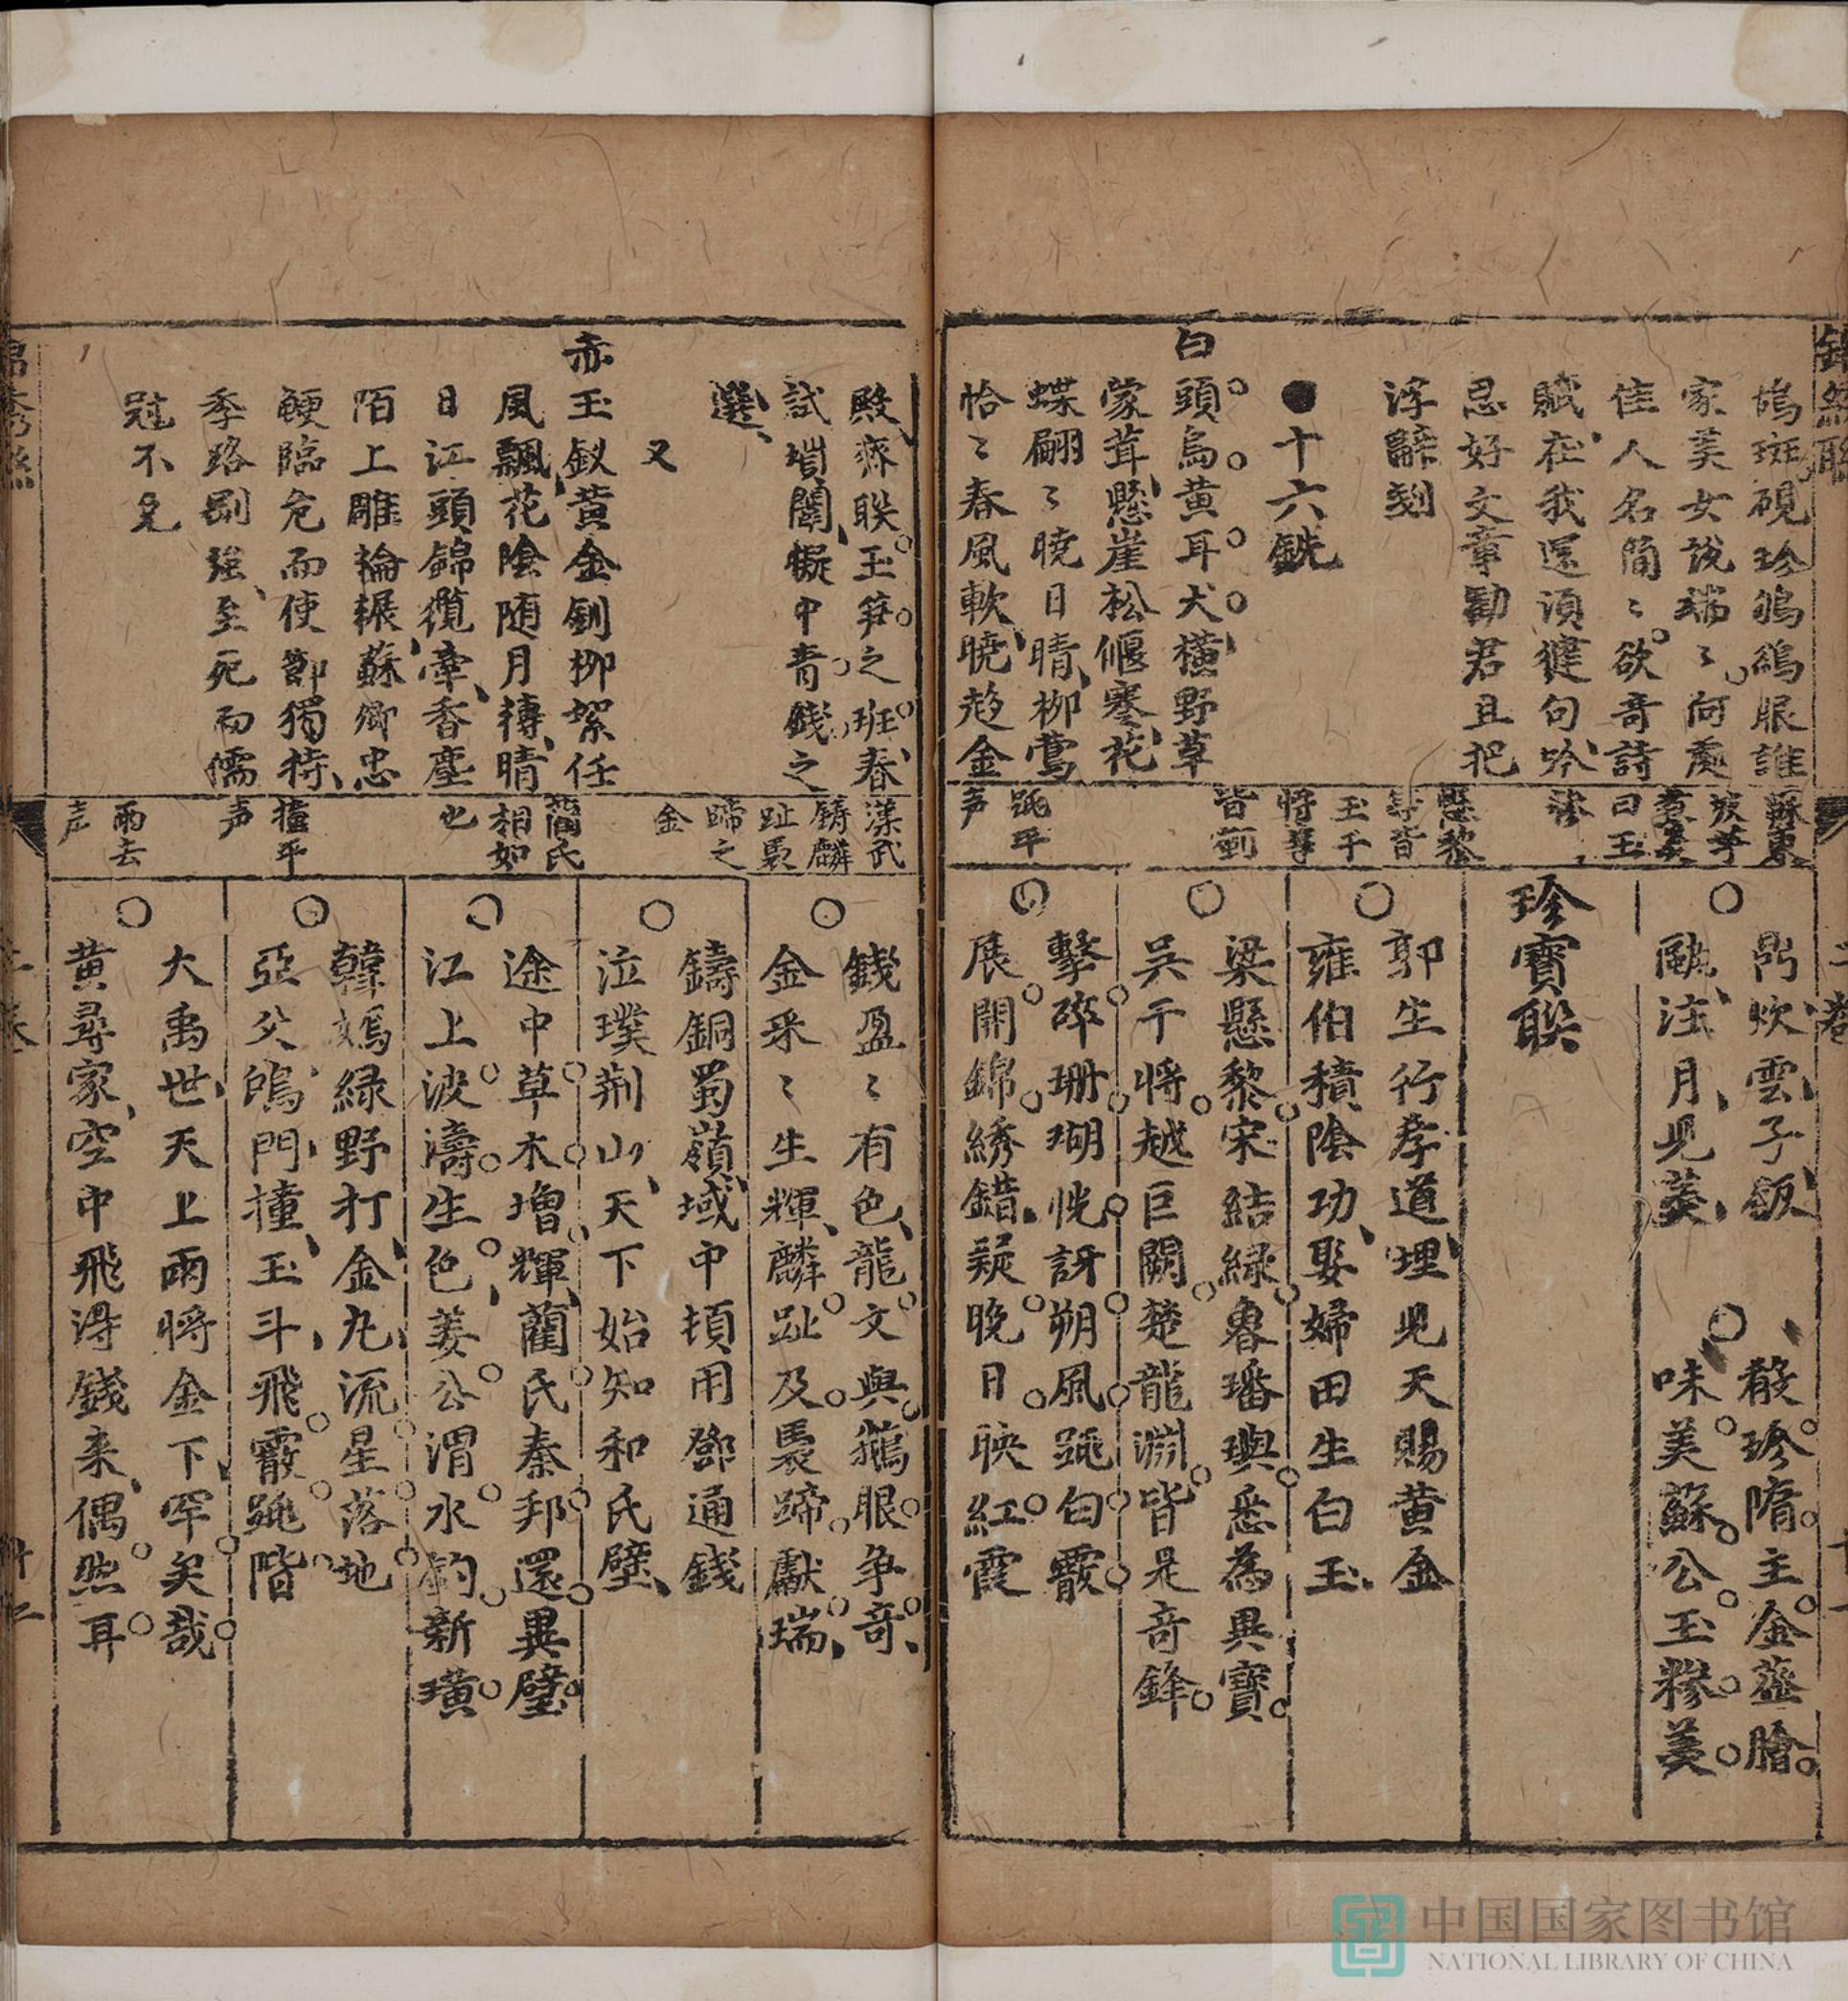 鴝斑硯珍鴝鵒眼誰
家美女說端〻何處
佳人名簡〻欲奇詩
賦在我還須健句吟
忌好文章勸君且把
浮辭刻
●十六銑
白頭烏黄耳犬橫野草
蒙茸懸崖松偃蹇花
蝶翩〻曉日晴柳鶯
恰〻春風軟曉趍金
懸黎
等皆
玉干
將等
皆劍
跳平
声
鼎炊雲子飯
甌注月兒羮
殽珍隋主金虀膾
味美蘇公玉糝羮
珍寶聮
郭生行孝道埋兒天賜黄金
雍伯積陰功娶婦田生白玉
梁懸黎宋結緑魯璠璵悉為異寶
吳干將越巨闕楚龍淵皆是奇鋒
擊碎珊瑚恍訝朔風跳白霰
展開錦綉錯疑晚日映紅霞
殿齊聮玉笋之班春
試瑣闈擬中青錢之
選
又
赤玉釵黄金釧柳絮任
風飄花陰随月轉晴
日江頭錦纜牽香塵
陌上雕輪輾蘇卿忠
鯁臨危而使節獨持
季路剛強至死而儒
冠不免
漢武
鑄麟
趾褭
蹄之
金
藺氏
相如
也
撞平
声
雨去
声
錢盈〻有色龍文與鵝眼争奇
金采〻生輝麟趾及褭蹄獻瑞
鑄銅蜀嶺域中頂用鄧通錢
泣璞荆山天下始知和氏璧
途中草木增輝藺氏秦邦還異璧
江上波濤生色姜公渭水釣新璜
韓嫣緑野打金丸流星落地
亞父鴻門撞玉斗飛霰跳階
大禹世天上雨將金下罕矣哉
黄尋家空中飛得錢来偶然耳
中国国家图书馆
NATIONAL LIBRARY OF CHINA